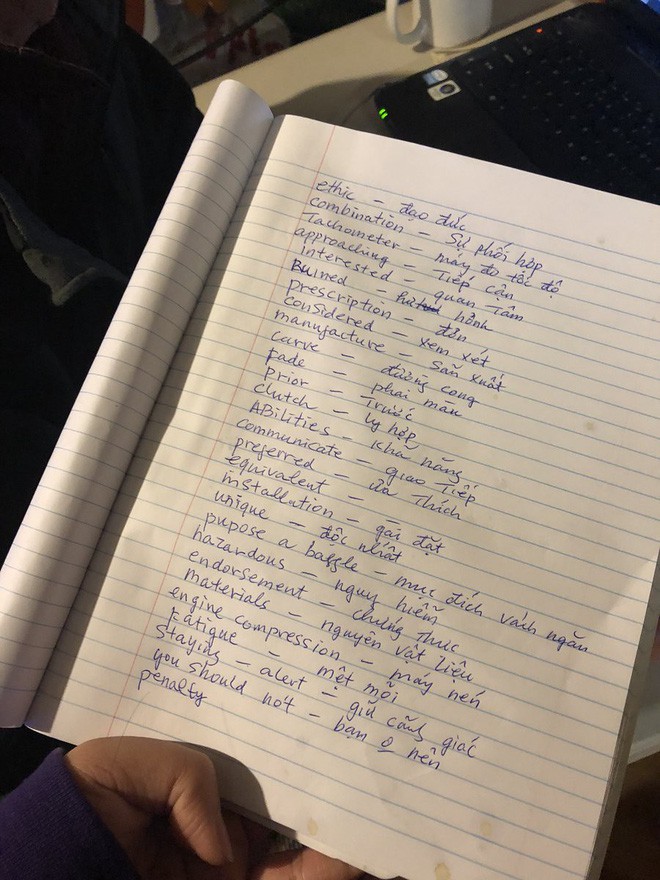 ethic – đạo đức
combination – Sự phối hợp
Tachometer – máy đo tốc độ
approaching – Tiếp cận
interested – quan Tâm
Ruined – hỏnh
prescription – đơn
considered – xem xét
manufacture – sản xuất
curve – đường cong
Fade – phai màu
prior – Trước
clutch – ly hợp
ABilities – khả năng
communicate – giao Tiếp
preferred – ưa Thích
equivalent –
installation – gài đặt
unique – độc nhất
pupose a baffle – mục đích vách ngăn
hazardous – nguy hiểm
endorsement – chứng thực
materials – nguyên vật liệu
engine compression – máy nén
Fatigue – mệt mỏi
Staying – alert – giữ cảnh giác
you should not – bạn o nên
penalty